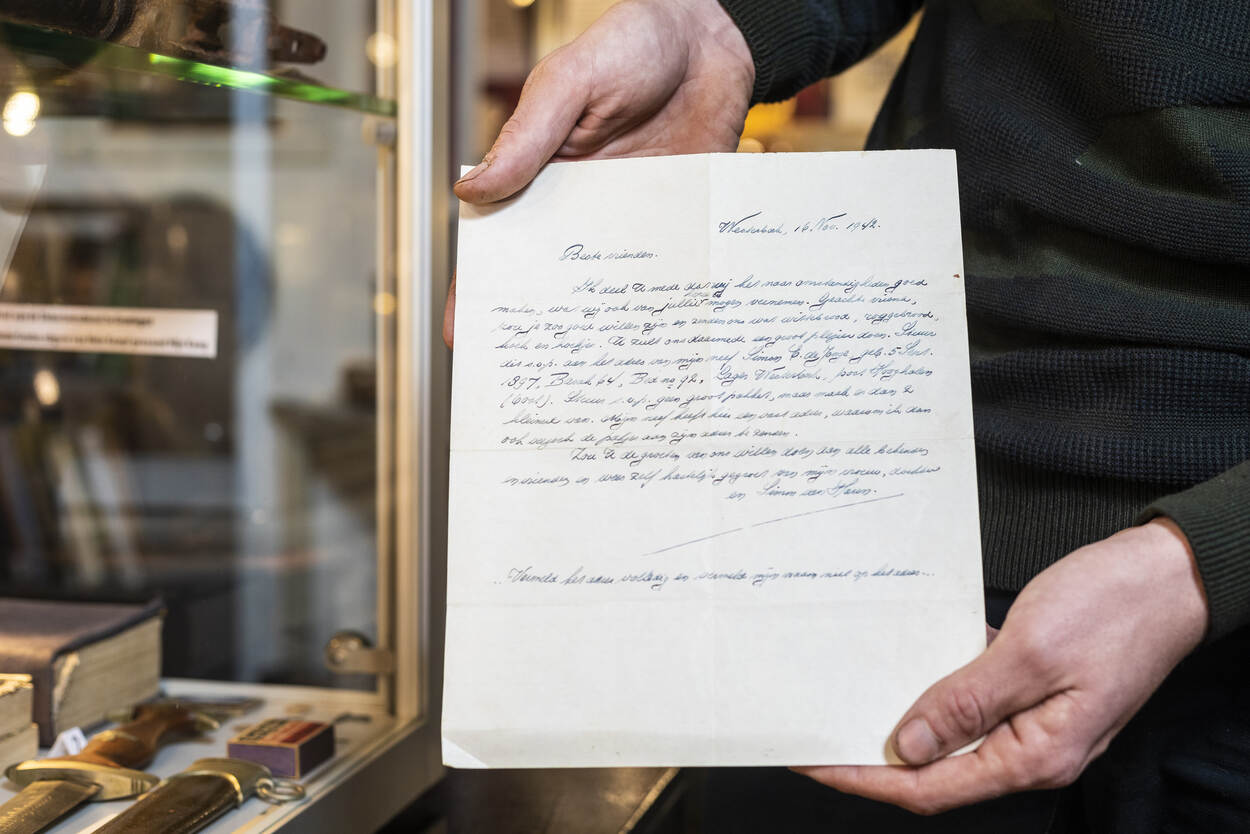 Westerbork, 16 Nov. 1942.
Beste vrienden.
Ik deel U mede dat wij het naar omstandigheden goed
maken, wat wij ook van jullie mogen vernemen. Geachte vriend,
hoop
zou je zoo goed willen zijn en zenden ons wat wittebrood, roggebrood,
koek en koekjes. U zult ons daarmede een groot plezier doen. Stuur
dit s.v.p. aan het adres van mijn neef Simon E. de Jonge, geb. 5 Sept.
1897, Barak 64, Bed no 92, Lager Westerbork, post Hooghalen
(Oost). Stuur s.v.p. geen groot pakket, maar maak er dan 2
kleinere van. Mijn neef heeft hier een vast adres, waarom ik dan
ook verzoek de pakjes aan zijn adres te zenden.
Zou U de groeten van ons willen doen aan alle bekenden
en vrienden en wees zelf hartelijk gegroet van mijn vrouw, dochter
en Simon van Haren.
Vermeld het adres volledig en vermeld mijn naam niet op het adres